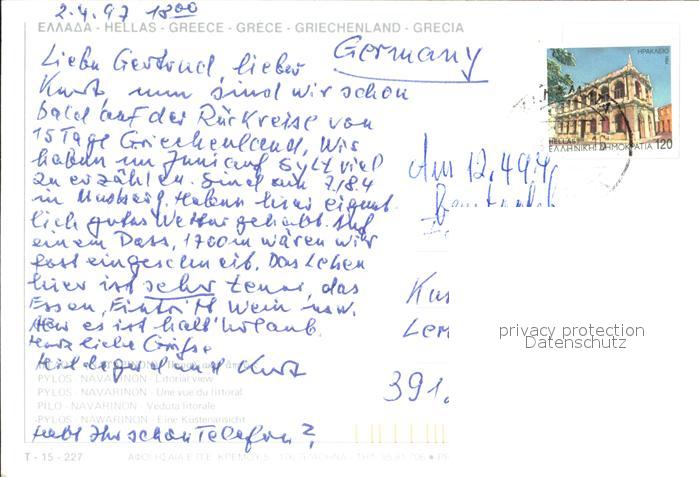 2.4.97 18⁰⁰
ΕΛΛΑΔΑ - HELLAS - GREECE - GRECE - GRIECHENLAND - GRECIA
Germany
Liebe Gertrud, lieber
Kurt, nun sind wir schon
bald auf der Rückreise von
15 Tage Griechenland, Wir
haben im Juni auf Sylt viel
zu erzählen. Sind am 7/8.4
in . Haben hier eigent
lich gutes Wetter gehabt. Auf
einem Pass, 1700m wären wir
fast eingeschneit. Das Leben
hier ist sehr teuer, das
Essen, Eintritt Wein usw.
Aber es ist halt Urlaub.
Herzliche Grüße
Hildegard und Kurt
PYLOS - NAVARINON - Litorial view
PYLOS - NAVARINON - Une vue du littoral
PILO - NAVARINON - Veduta litorale
PYLOS - NAWARINON - Eine Küstenansicht
Habt Ihr schon Telefon?
T - 15 - 227
ΗΡΑΚΛΕΙΟ
HELLAS
ΕΛΛΗΝΙΚΗ ΔΗΜΟΚΡΑΤΙΑ 120
Am 12.4 94
Kur
Ler
391.
privacy protection
Datenschutz